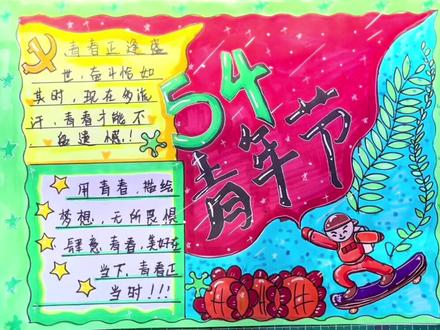 青春正逢盛
世,奋斗恰如
其时,现在多流
汗,青春才能不
留遗憾!!
54
青年节
用青春,描绘
梦想,无所畏惧
肆意青春,美好在
当下,青春正
当时!!!